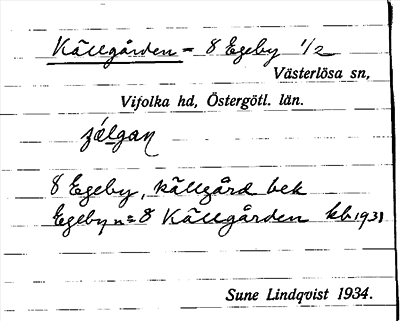 Källgården = 8 Egeby 1/2
Västerlösa sn,
Vifolka hd, Östergötl. län.
8 Egeby, källgård bek
Egeby n=8 Källgården kb 1931
Sune Lindqvist 1934.